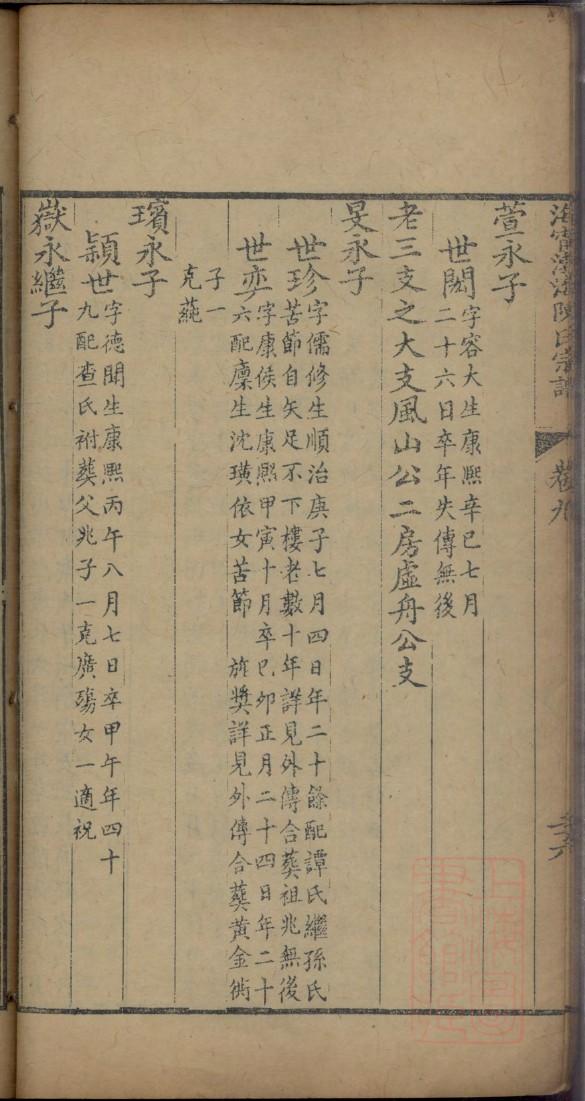 海寧渤海陳氏宗譜
卷九
萱永子
世閎 字容大生康熙辛巳七月
二十六日卒年失傳無後
老三支之大支風山公二房虛舟公支
旻永子
世珍 字儒修生順治庚子七月四日年二十餘配譚氏繼孫氏
苦節自矢足不下樓老數十年詳見外傳合葬祖兆無後
世奕 字康侯生康熙甲寅十月卒己卯正月二十四日年二十
六配廩生沈璜依女苦節 旌獎詳見外傳合葬黃金衖
子一
克蕤
璸永子
穎世 字德聞生康熙丙午八月七日卒甲午年四十
九配查氏祔葬父兆子一克廣殤女一適祝
嶽永繼子